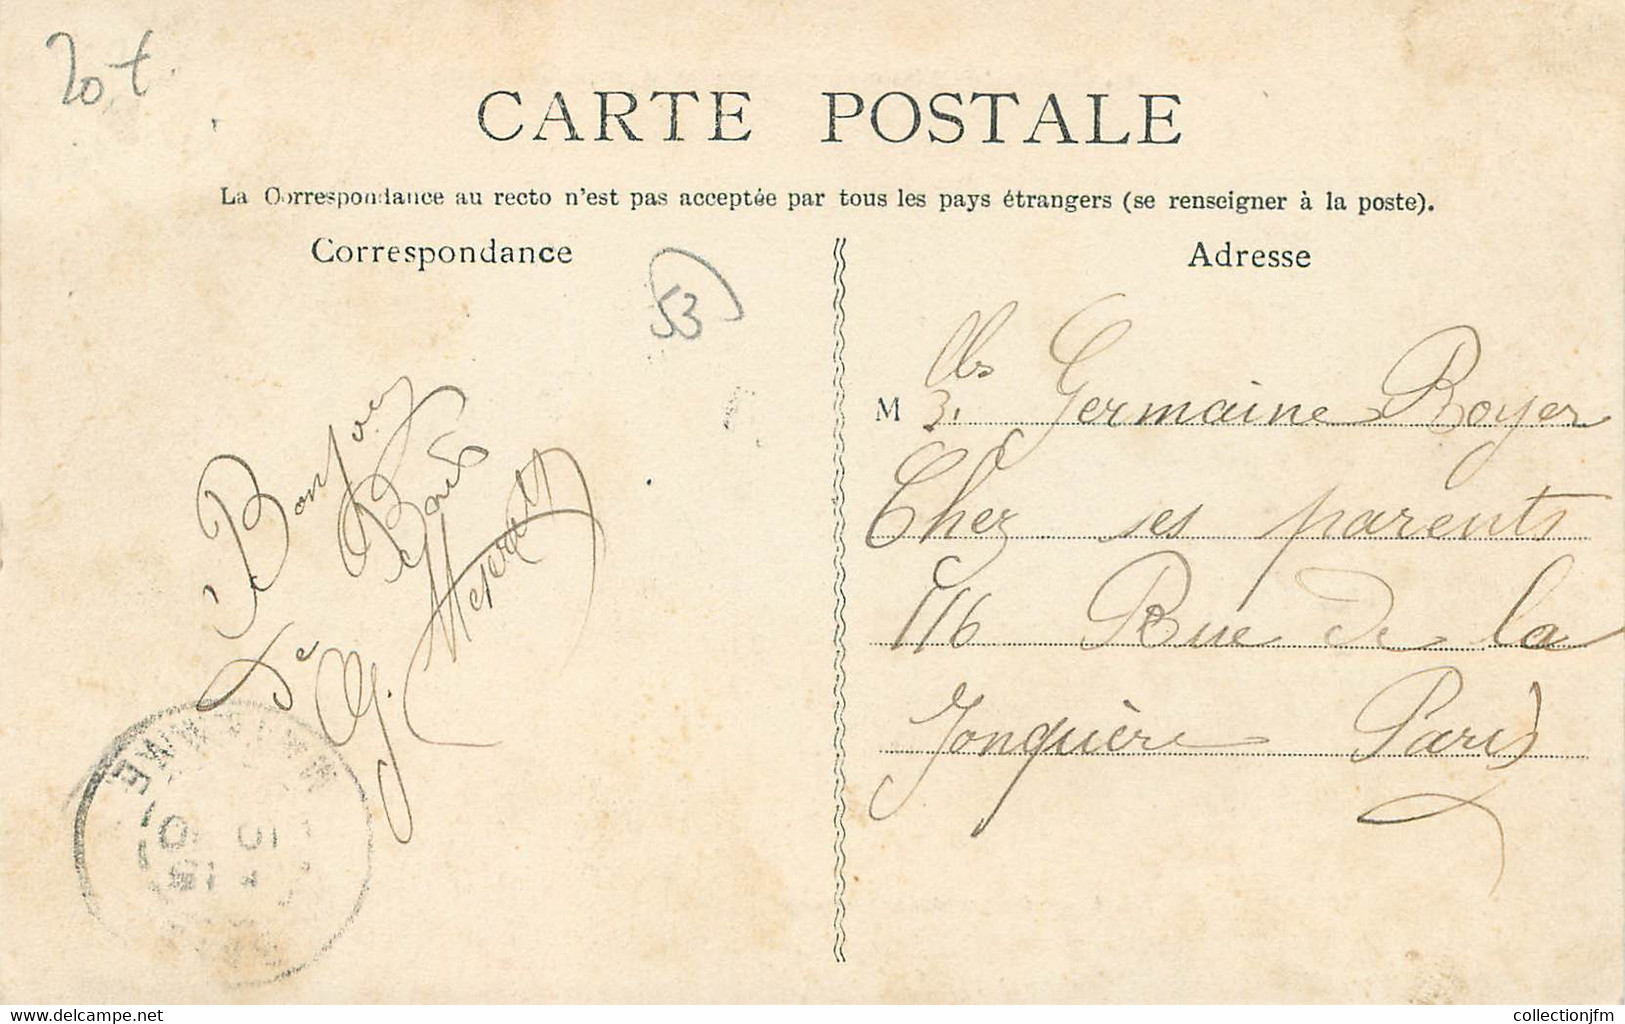 20 €
CARTE POSTALE
La Correspondance au recto n'est pas acceptée par tous les pays étrangers (se renseigner à la poste).
Correspondance
Adresse
53
M Germaine Royer
Chez ses parents
116 Rue de la
Jonquière Paris
Bonjour
De
G.
MAYENNE
delcampe.net
collectionjfm